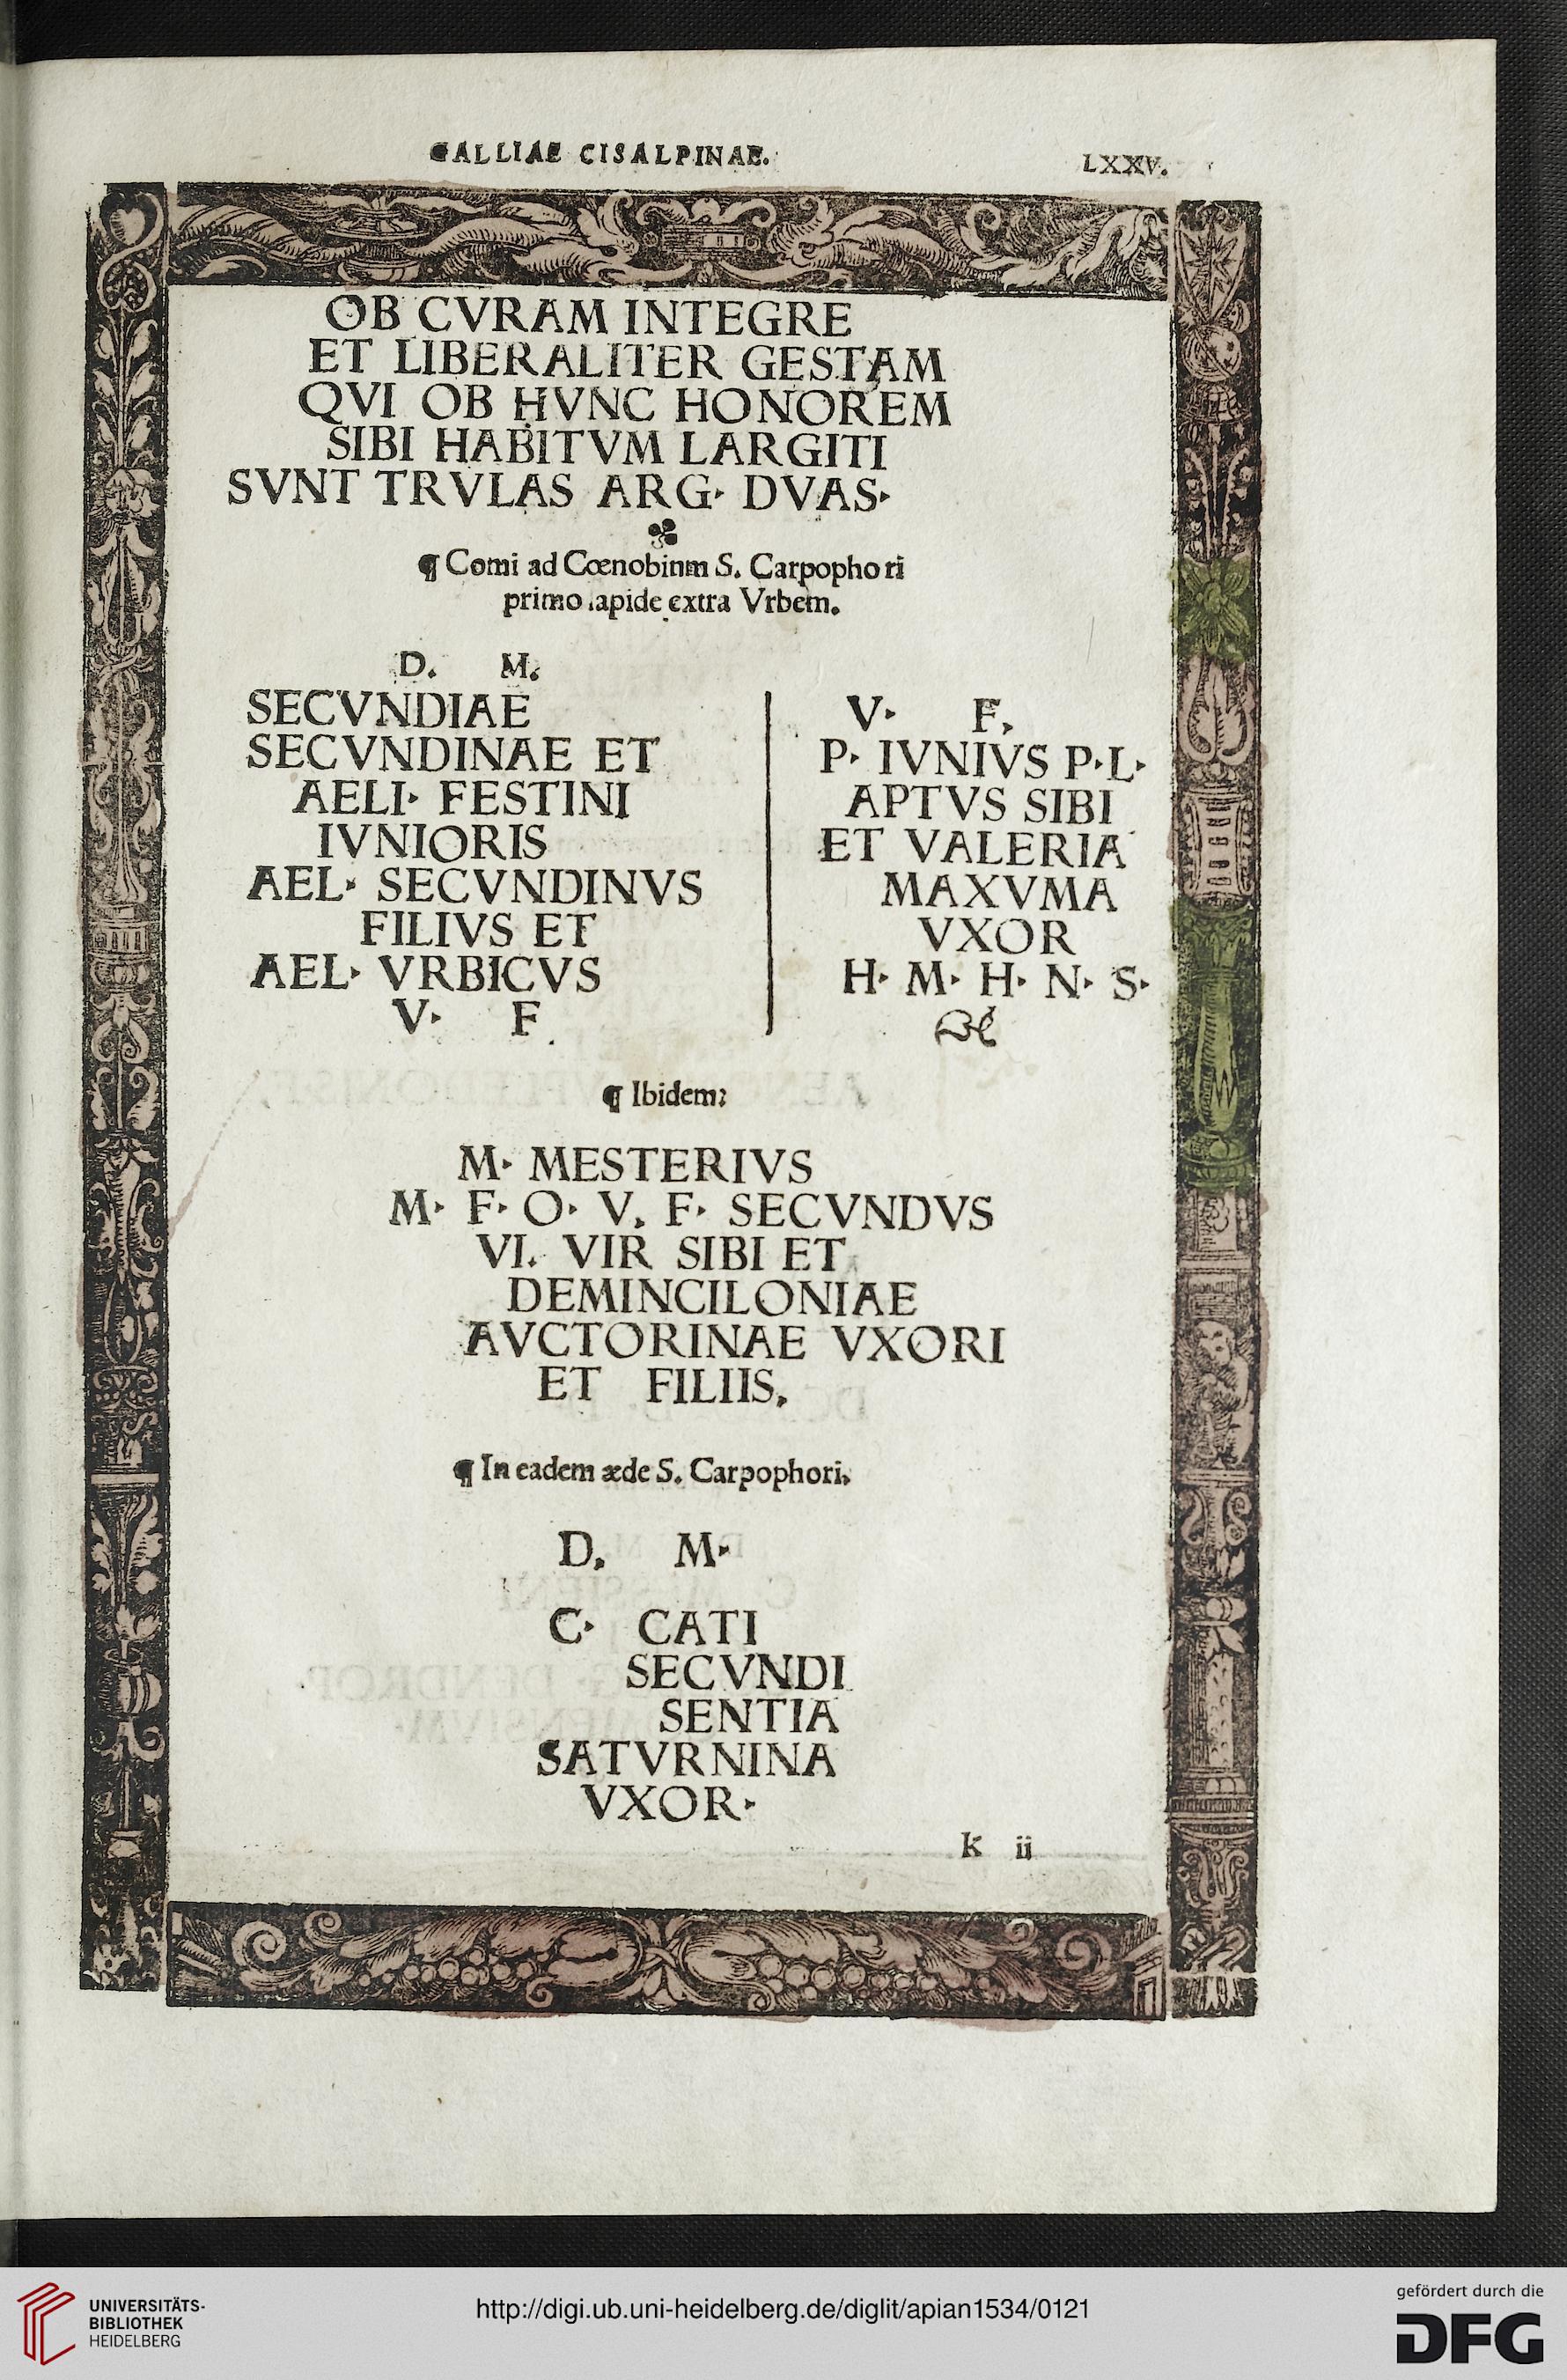 GALLIAE CISALPINAE.
LXXV.
OB CVRAM INTEGRE
ET LIBERALITER GESTAM
QVI OB HVNC HONOREM
SIBI HABITVM LARGITI
SVNT TRVLAS ARG· DVAS·
¶ Comi ad Cœnobinm S. Carpophori
primo lapide extra Vrbem.
D. M.
SECVNDIAE
SECVNDINAE ET
AELI· FESTINI
IVNIORIS
AEL· SECVNDINVS
FILIVS ET
AEL· VRBICVS
V· F.
V· F.
P· IVNIVS P·L·
APTVS SIBI
ET VALERIA
MAXVMA
VXOR
H· M· H· N· S·
¶ Ibidem:
M· MESTERIVS
M· F· O· V. F· SECVNDVS
VI. VIR SIBI ET
DEMINCILONIAE
AVCTORINAE VXORI
ET FILIIS.
¶ In eadem æde S. Carpophori.
D. M·
C· CATI
SECVNDI
SENTIA
SATVRNINA
VXOR·
k ii
UNIVERSITÄTS-
BIBLIOTHEK
HEIDELBERG
http://digi.ub.uni-heidelberg.de/diglit/apian1534/0121
gefördert durch die
DFG